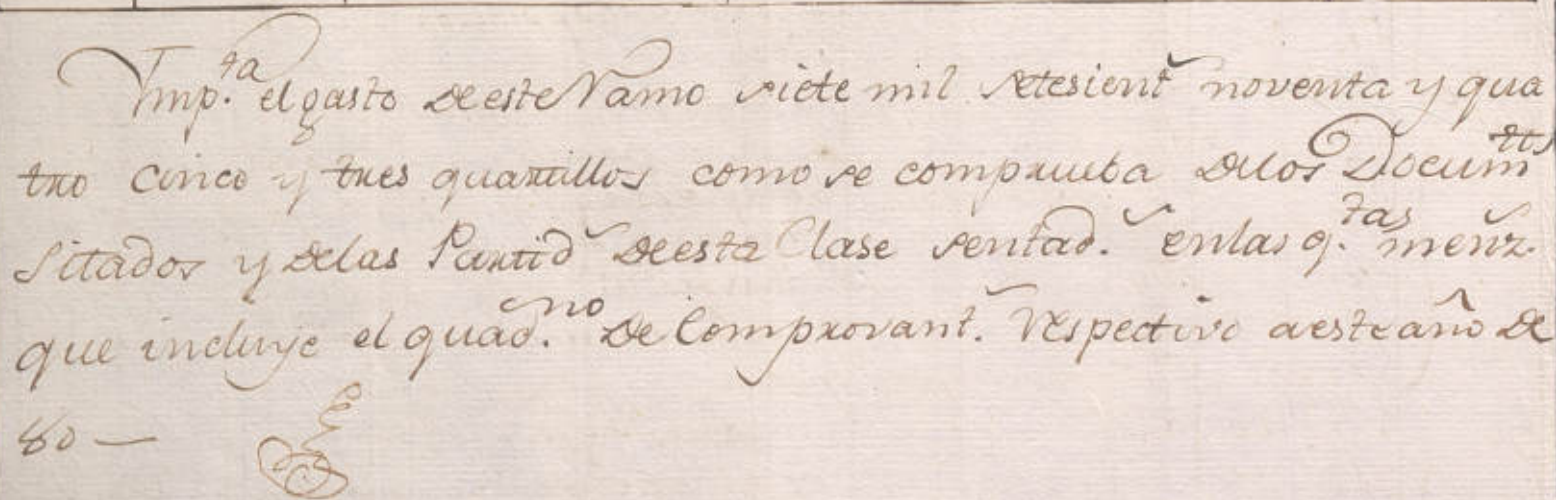 Imp.ta el gasto de este Ramo siete mil setesient.s noventa y qua
tro cinco y tres quartillos como se comprueba de los Docum.tos
Sitados y de las Partid.s de esta Clase sentad.s en las q.tas menz.
que incluye el quad.no de Comprovant.s respectivo a este año de
80 —